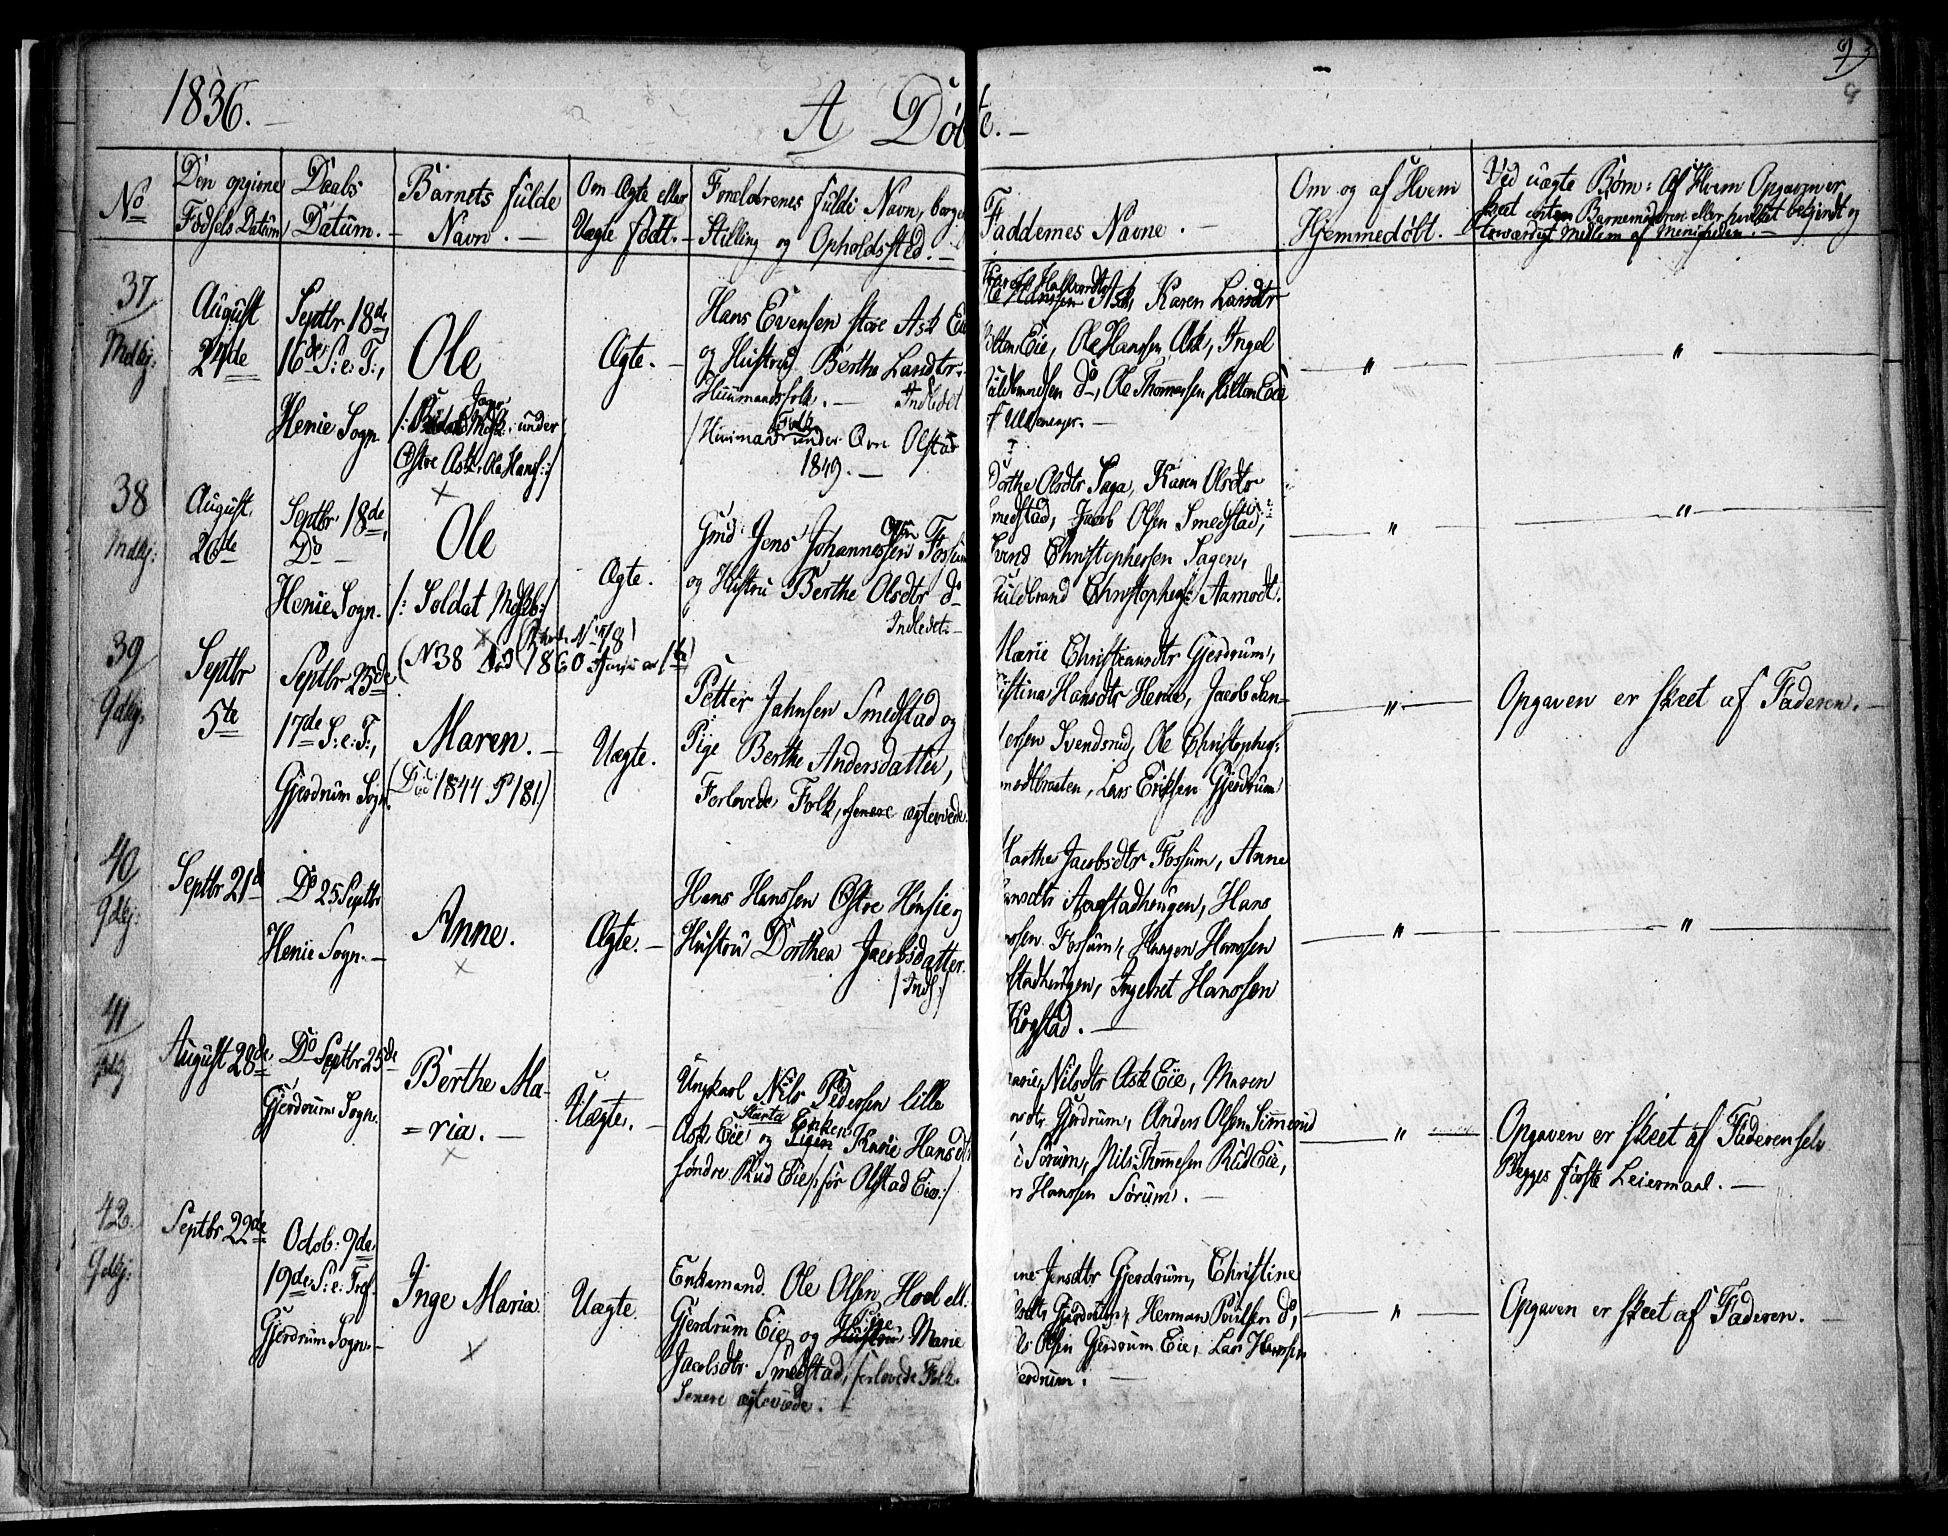 1836.
A Døbte.
93
No
Den opgivne Fødsels Datum
Daabs Datum.
Barnets fulde Navn.
Om Ægte eller Uægte født.
Forældrenes fulde Navn, borge
Stilling og Opholdssted.
Faddernes Navne.
Om og af Hvem Hjemmedøbt.
Ved uægte Børn: Af Hvem Opgaven er
skeet enten Barnemoderen eller hvilket bekjendt og
troværdigt Medlem af Menigheden.
37
Mdkj:
August
24de
Septbr 18de
16de S: e: T:,
Henie Sogn
Ole
under
Østre Ask, Ole Hans:/
Ægte.
Hans Evensen store Ask Eie
og Hustru Berthe Landtr:
Huusmandsfolk. Indledet
/Huusmand Folk under Olstad
1849.
Karen Larsdtr
Eie, Ole Hanssen Ask, Ingel
Guldbrandsen do, Ole Thommessen Hilton Eie
"
"
38
Mdkj:
August
26de
Septbr 18de,
Do
Henie Sogn.
Ole
/: Soldat
Ægte.
Gmd: Jens Johannessen Fossum
og Hustru Berthe Olsdtr d
Indledet.
Dorthe Olsdtr Saga, Karen Olsdtr
Smedstad, Jacob Olsen Smedstad,
Svend Christophersen Sagen,
Guldbrand Christophers: Aamodt.
"
"
(N 38 Død 1860
39
Qdkj:
Septbr
5te
Septbr 25de
17de S: e: T:,
Gjerdrum Sogn.
Maren.
(Død 1844 P 181)
Uægte.
Petter Jahnsen Smedstad og
Pige Berthe Andersdatter,
Forlovede Folk, senere ægteviede.
Marie Christiansdtr Gjerdrum,
Hansdtr Henie, Jacob Lar-
sen Svendsrud, Ole Christophers:
modtbraaten, Lars Eriksen Gjerdrum
"
Opgaven er skeet af Faderen.
40
Qdkj:
Septbr 21d
Do 25 Septbr
Henie Sogn.
Anne.
Ægte.
Hans Hanssen Østre Hønsie og
Hustru Dorthea Jacobsdatter.
/Indl:/
Marthe Jacobsdtr Fossum, Anne
Hansdtr Hans
Hanssen Fossum, Haagen Hanssen
Ingebret Hanssen
Kogstad.
"
"
41
August 28de
Do Septbr 25de
Gjerdrum Sogn.
Berthe Ma-
=ria.
Uægte.
Ungkarl Nils Pedersen lille
Ask Eie og Enken Karie Hansdtr
søndre Rud Eie /: før Olstad Eie:/
Marie Nilsdtr Ask Eie, Maren
Gjerdrum, Anders Olsen Simmerud
Sørum, Nils Thommesen Rud Eie,
Hanssen Sørum.
"
Opgaven er skeet af Faderen selv
Begges første Leiermaal.
42
Qdkj:
Septbr 22de
Octob: 9de,
19de S: e: Tref
Gjerdrum Sogn.
Inge Maria
Uægte
Enkemand Ole Olsen Hoel ell:
Gjerdrum Eie og Hustru Pige Marie
Jacobsdtr Smedstad, forlovede Folk.
Senere ægteviede.
Jensdtr Gjerdrum, Christine
Gjerdrum, Herman Poulsen do,
Olsen Gjerdrum Eie, Lars Hanssen
Gjerdrum.
"
Opgaven er skeet af Faderen.